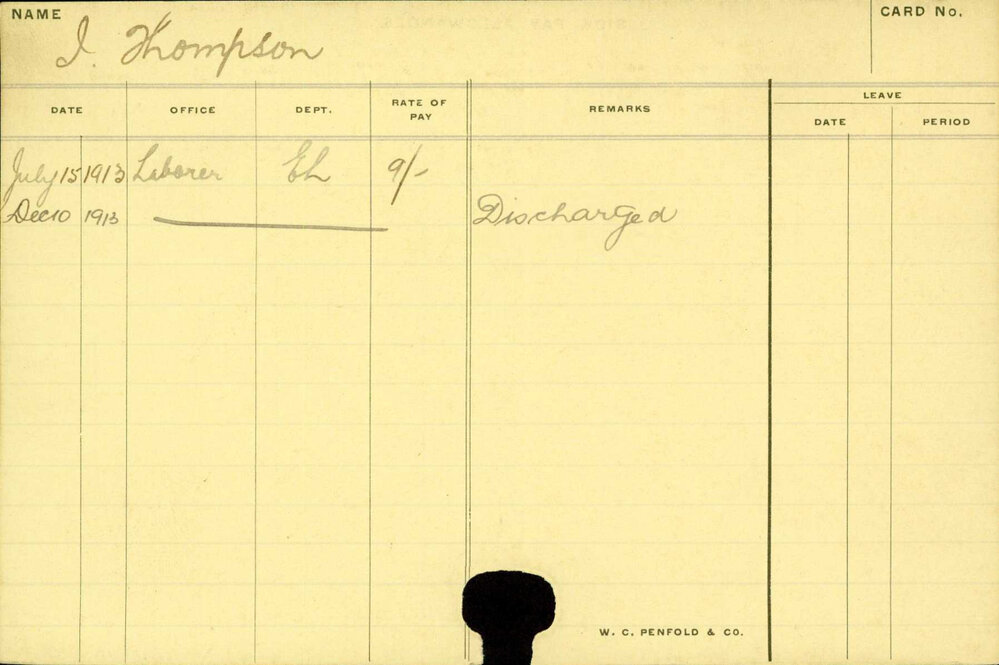 NAME
CARD No.
I. Thompson
DATE OFFICE DEPT. RATE OF PAY REMARKS LEAVE
DATE PERIOD
July 15 1913 Laborer EL 9/-
Dec 10 1913 Discharged
W. C. PENFOLD & CO.